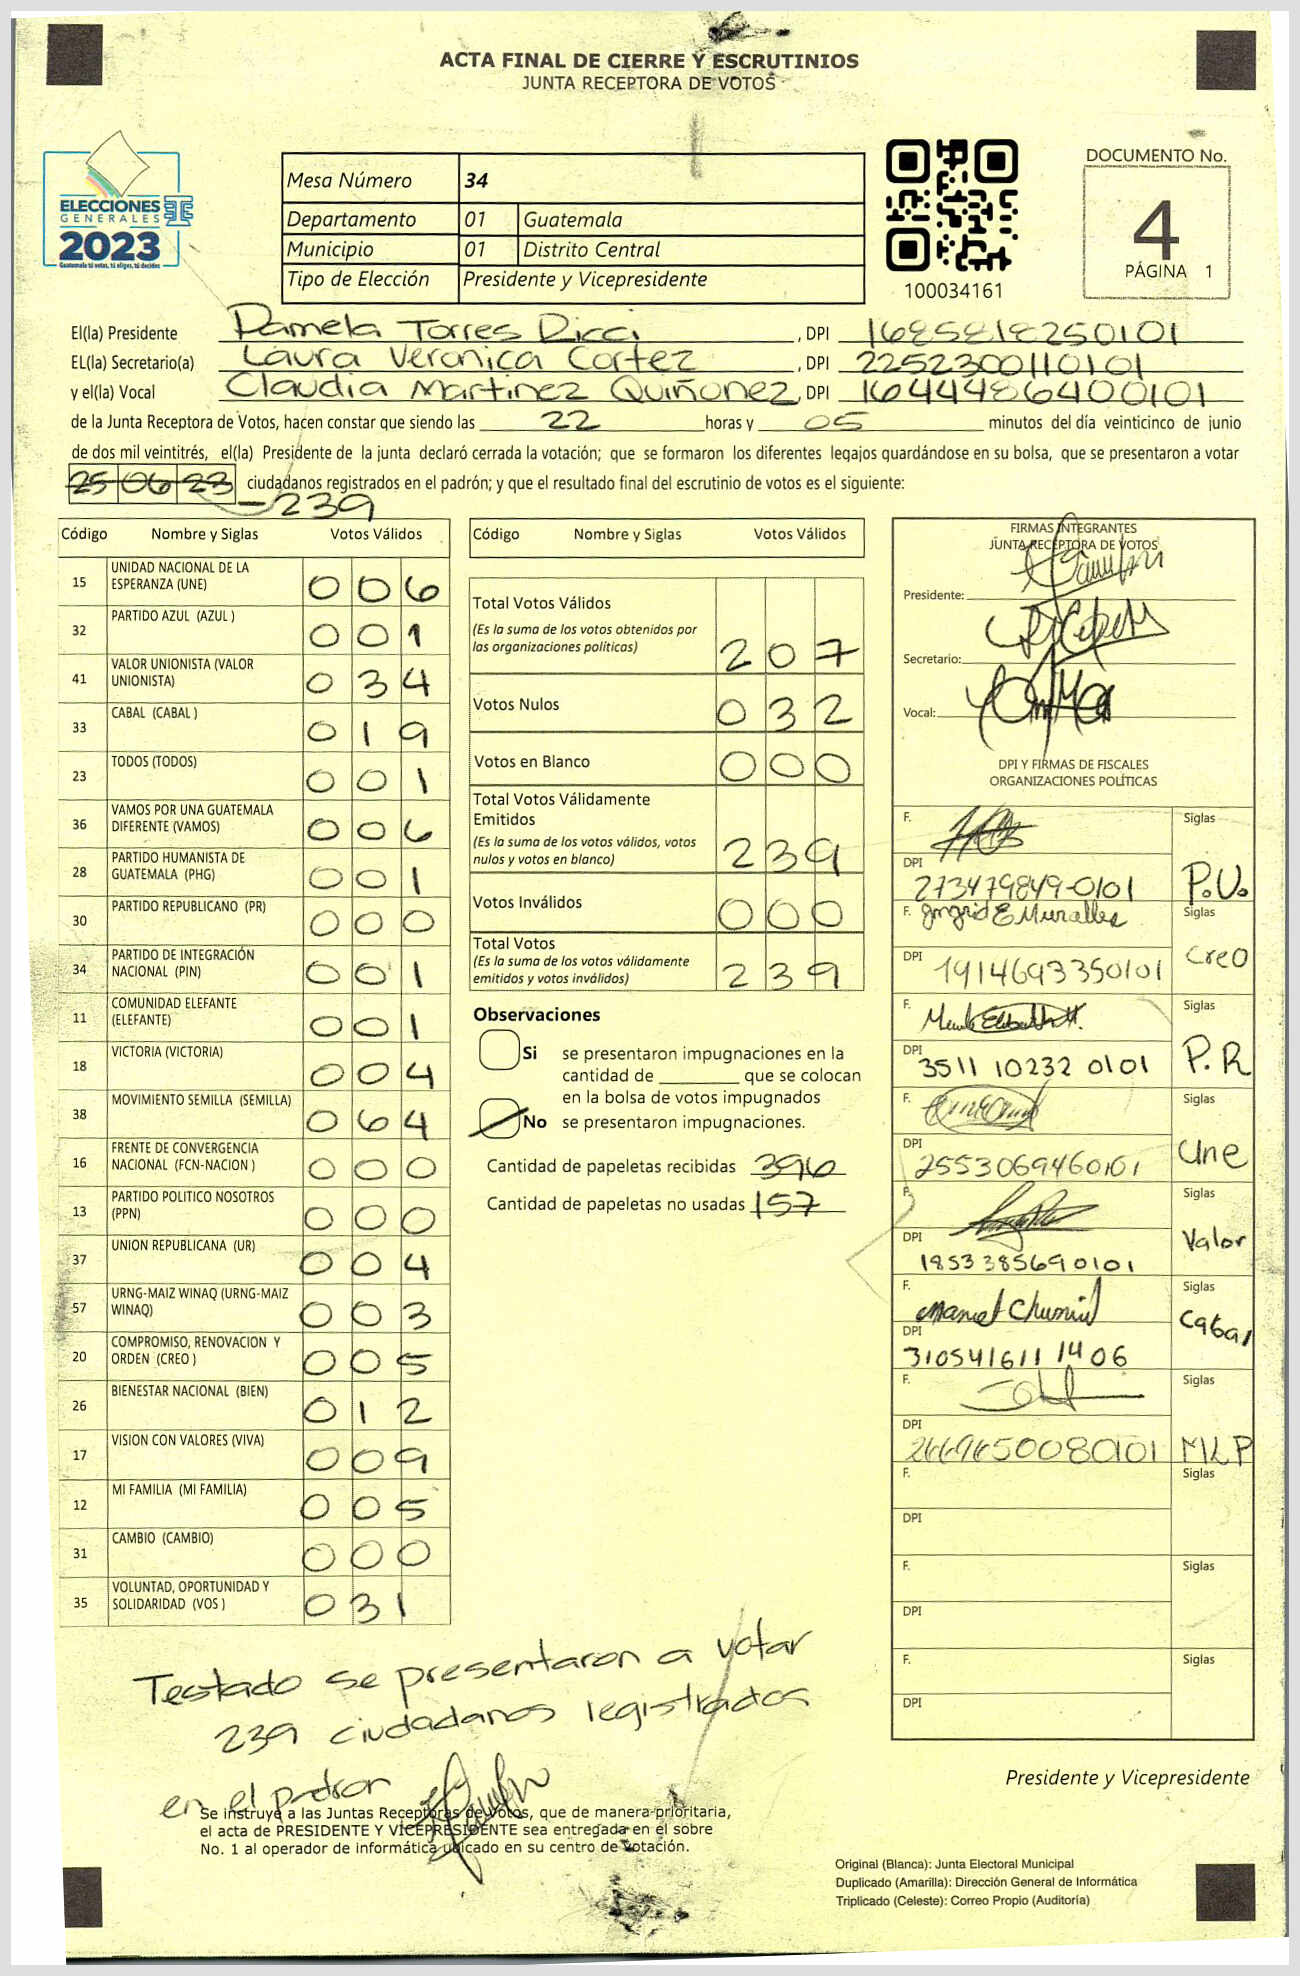 ACTA FINAL DE CIERRE Y ESCRUTINIOS
JUNTA RECEPTORA DE VOTOS
ELECCIONES
GENERALES
2023
Guatemala tú votas, tú eliges, tú decides
Mesa Número 34
Departamento 01 Guatemala
Municipio 01 Distrito Central
Tipo de Elección Presidente y Vicepresidente
100034161
DOCUMENTO No.
4
PÁGINA 1
El(la) Presidente Pamela Torres Ricci, DPI 1685818250101
EL(la) Secretario(a) Laura Veronica Cortez, DPI 2252300110101
y el(la) Vocal Claudia Martinez Quiñonez, DPI 1644486400101
de la Junta Receptora de Votos, hacen constar que siendo las 22 horas y 05 minutos del día veinticinco de junio
de dos mil veintitrés, el(la) Presidente de la junta declaró cerrada la votación; que se formaron los diferentes legajos guardándose en su bolsa, que se presentaron a votar
25 06 23 ciudadanos registrados en el padrón; y que el resultado final del escrutinio de votos es el siguiente:
239
Código Nombre y Siglas Votos Válidos
15 UNIDAD NACIONAL DE LA ESPERANZA (UNE) 006
32 PARTIDO AZUL (AZUL ) 001
41 VALOR UNIONISTA (VALOR UNIONISTA) 034
33 CABAL (CABAL ) 019
23 TODOS (TODOS) 001
36 VAMOS POR UNA GUATEMALA DIFERENTE (VAMOS) 006
28 PARTIDO HUMANISTA DE GUATEMALA (PHG) 001
30 PARTIDO REPUBLICANO (PR) 000
34 PARTIDO DE INTEGRACIÓN NACIONAL (PIN) 001
11 COMUNIDAD ELEFANTE (ELEFANTE) 001
18 VICTORIA (VICTORIA) 004
38 MOVIMIENTO SEMILLA (SEMILLA) 064
16 FRENTE DE CONVERGENCIA NACIONAL (FCN-NACION ) 000
13 PARTIDO POLITICO NOSOTROS (PPN) 000
37 UNION REPUBLICANA (UR) 004
57 URNG-MAIZ WINAQ (URNG-MAIZ WINAQ) 003
20 COMPROMISO, RENOVACION Y ORDEN (CREO ) 005
26 BIENESTAR NACIONAL (BIEN) 012
17 VISION CON VALORES (VIVA) 009
12 MI FAMILIA (MI FAMILIA) 005
31 CAMBIO (CAMBIO) 000
35 VOLUNTAD, OPORTUNIDAD Y SOLIDARIDAD (VOS ) 031
Código Nombre y Siglas Votos Válidos
Total Votos Válidos
(Es la suma de los votos obtenidos por
las organizaciones políticas) 207
Votos Nulos 032
Votos en Blanco 000
Total Votos Válidamente
Emitidos
(Es la suma de los votos válidos, votos
nulos y votos en blanco) 239
Votos Inválidos 000
Total Votos
(Es la suma de los votos válidamente
emitidos y votos inválidos) 239
Observaciones
Si se presentaron impugnaciones en la
cantidad de ________ que se colocan
en la bolsa de votos impugnados
No se presentaron impugnaciones.
Cantidad de papeletas recibidas 396
Cantidad de papeletas no usadas 157
FIRMAS INTEGRANTES
JUNTA RECEPTORA DE VOTOS
Presidente:
Secretario:
Vocal:
DPI Y FIRMAS DE FISCALES
ORGANIZACIONES POLÍTICAS
F. Siglas
DPI 273479849-0101 P.U.
F. Ingrid E Muralles Siglas
DPI 1914693350101 Creo
F. Siglas
DPI 3511 10232 0101 P.R
F. Siglas
DPI 2553069460101 Une
F. Siglas
DPI 1853385690101 Valor
F. Manuel Chumil Siglas
DPI 310541611 1406 Cabal
F. Siglas
DPI MLP
F. Siglas
DPI
F. Siglas
DPI
F. Siglas
DPI
Testado se presentaron a votar
239 ciudadanos registrados
en el padron
Se instruye a las Juntas Receptoras de Votos, que de manera prioritaria,
el acta de PRESIDENTE Y VICEPRESIDENTE sea entregada en el sobre
No. 1 al operador de informática ubicado en su centro de votación.
Presidente y Vicepresidente
Original (Blanca): Junta Electoral Municipal
Duplicado (Amarilla): Dirección General de Informática
Triplicado (Celeste): Correo Propio (Auditoría)